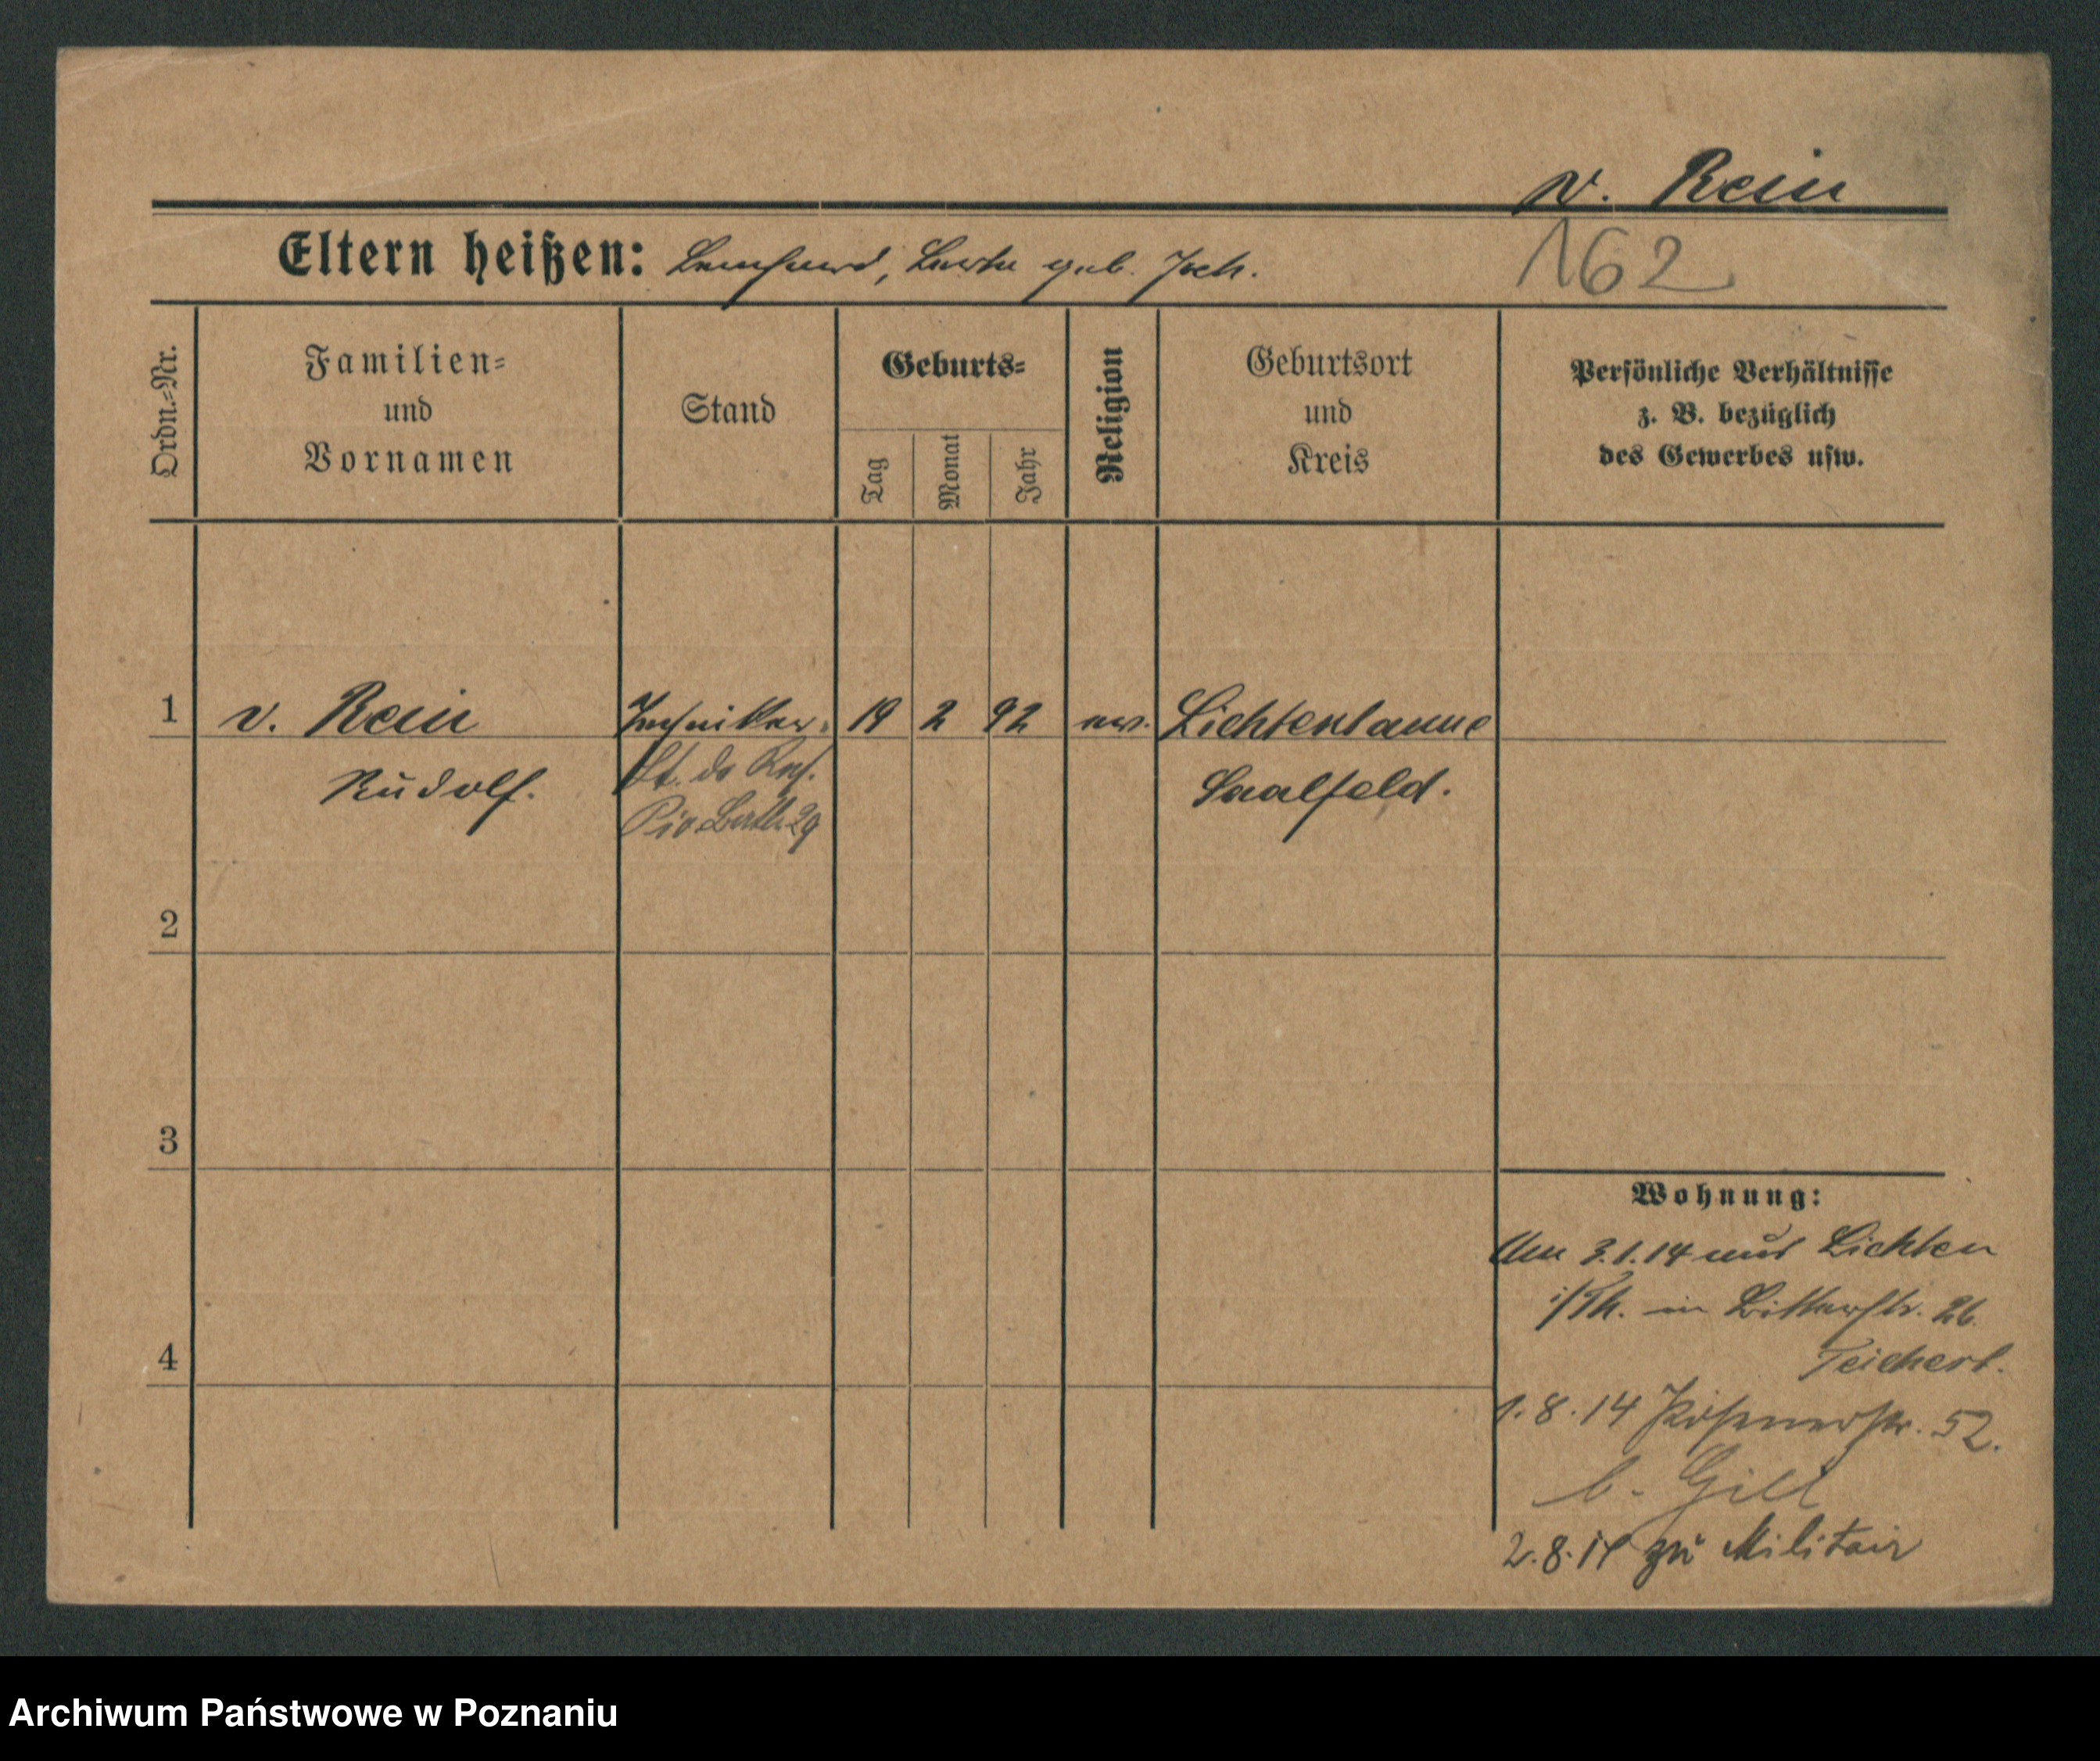 v. Rein
Eltern heißen: Bernhard, Berta geb. Joch.
162
Ordn.-Nr.
Familien-
und
Vornamen
Stand
Geburts-
Tag
Monat
Jahr
Religion
Geburtsort
und
Kreis
Persönliche Verhältnisse
z. B. bezüglich
des Gewerbes usw.
1 v. Rein Techniker. 19 2 92 ev. Lichtentanne
Lt. d. Res.
Rudolf. Saalfeld.
Pio 29
2
3
4
Wohnung:
Am 3.1.14 aus Lichten
i/Th. in Bitterstr. 26.
Teichert.
1.8.14 Posenerstr. 52.
b. Gill
2.8.14 zu Militair
Archiwum Państwowe w Poznaniu